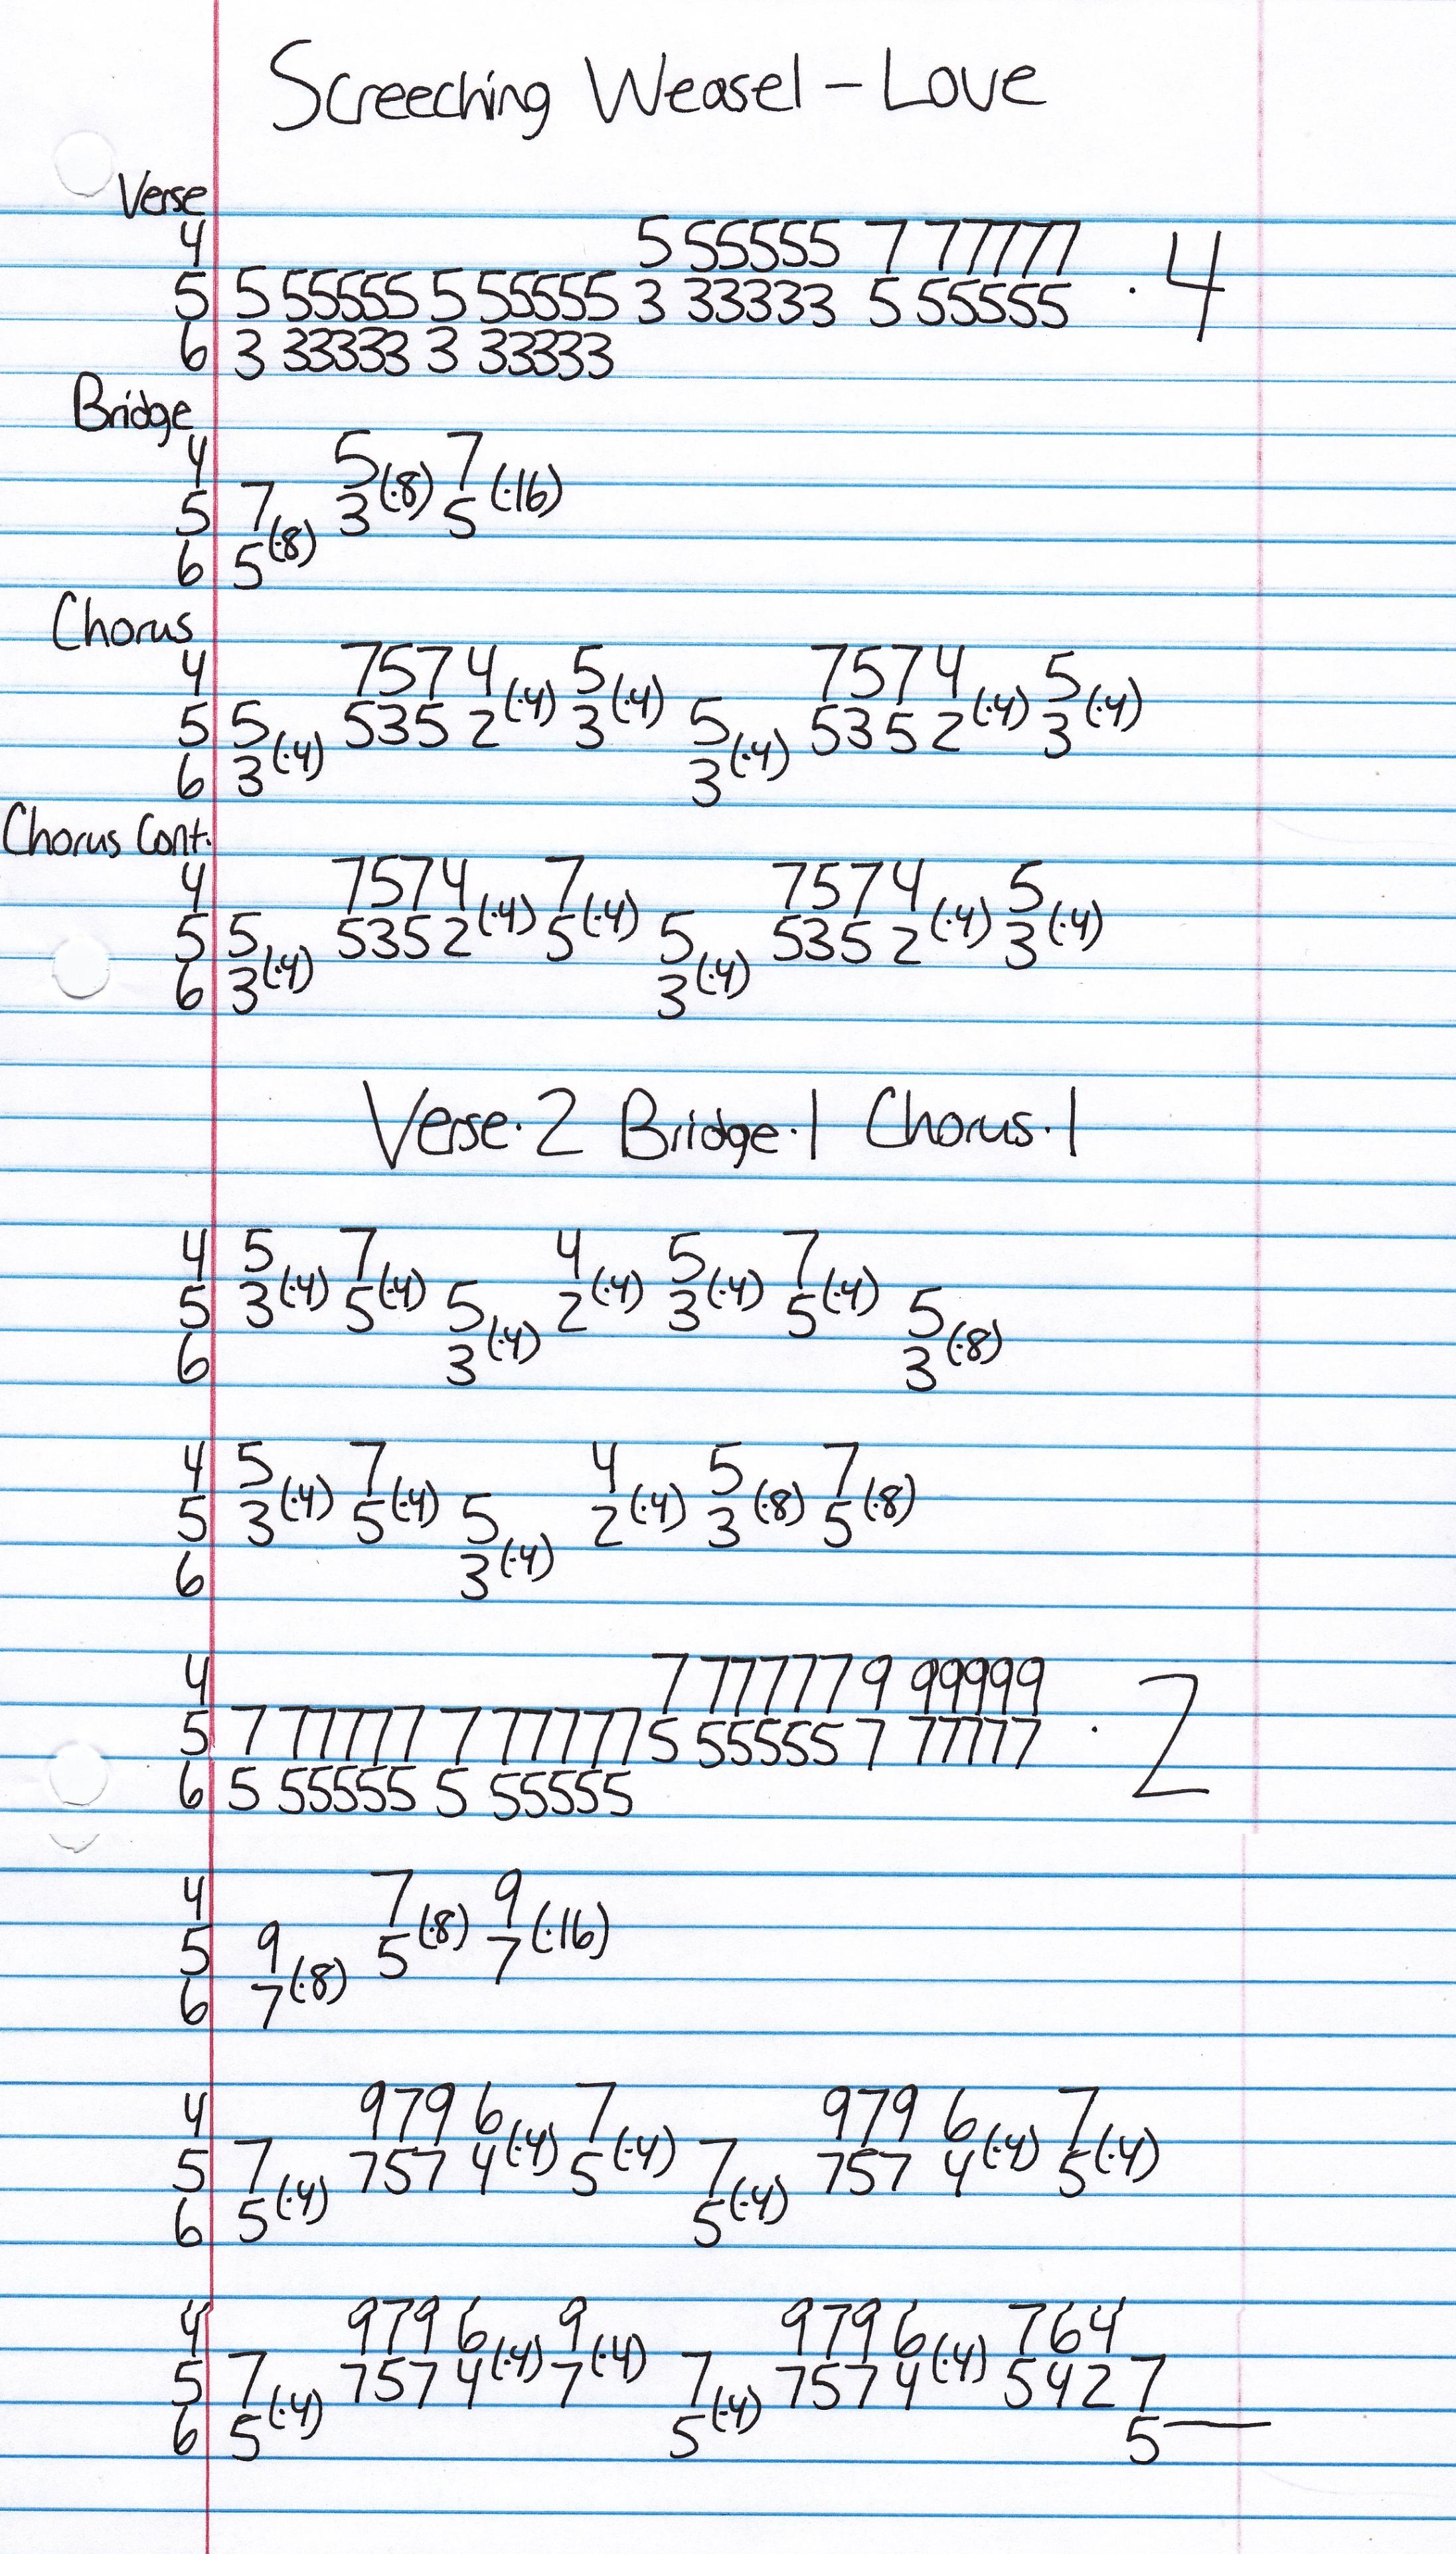 Screeching Weasel - Love
Verse
4 5 55555 7 77777
5 5 55555 5 55555 3 33333 5 55555 · 4
6 3 33333 3 33333
Bridge
4 5 7
5 7 (·8) 3 (·8) 5 (·16)
6 5
Chorus
4 7574 5 7574 5
5 5 (·4) 5352 (·4) 3 (·4) 5 (·4) 5352 (·4) 3 (·4)
6 3 3
Chorus Cont.
4 7574 7 7574 5
5 5 (·4) 5352 (·4) 5 (·4) 5 (·4) 5352 (·4) 3 (·4)
6 3 3
Verse·2 Bridge·1 Chorus·1
4 5 7 4 5 7
5 3 (·4) 5 (·4) 5 (·4) 2 (·4) 3 (·4) 5 (·4) 5 (·8)
6 3 3
4 5 7 4 5 7
5 3 (·4) 5 (·4) 5 (·4) 2 (·4) 3 (·8) 5 (·8)
6 3
4 7 77777 9 99999
5 7 77777 7 77777 5 55555 7 77777 · 2
6 5 55555 5 55555
4 7 9
5 9 (·8) 5 (·8) 7 (·16)
6 7
4 979 6 7 979 6 7
5 7 (·4) 757 4 (·4) 5 (·4) 7 (·4) 757 4 (·4) 5 (·4)
6 5 5
4 979 6 9 979 6 764
5 7 (·4) 757 4 (·4) 7 (·4) 7 (·4) 757 4 (·4) 542 7
6 5 5 5